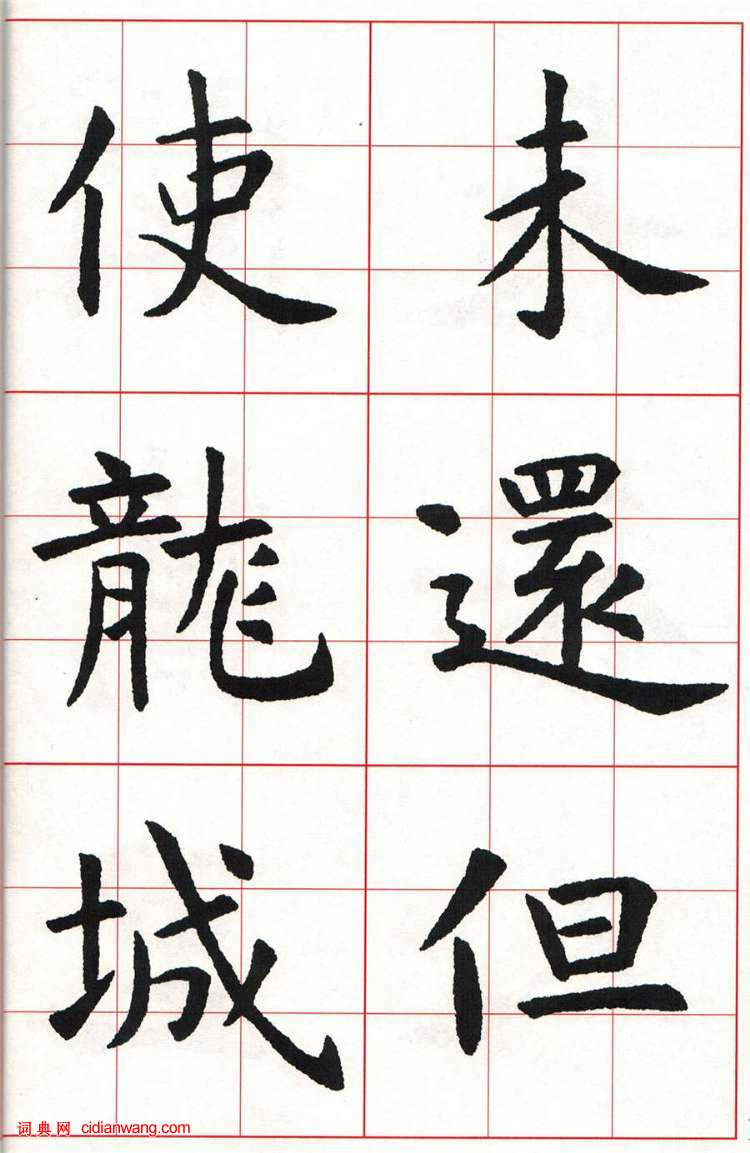 未還但
使龍城
词典网 cidianwang.com